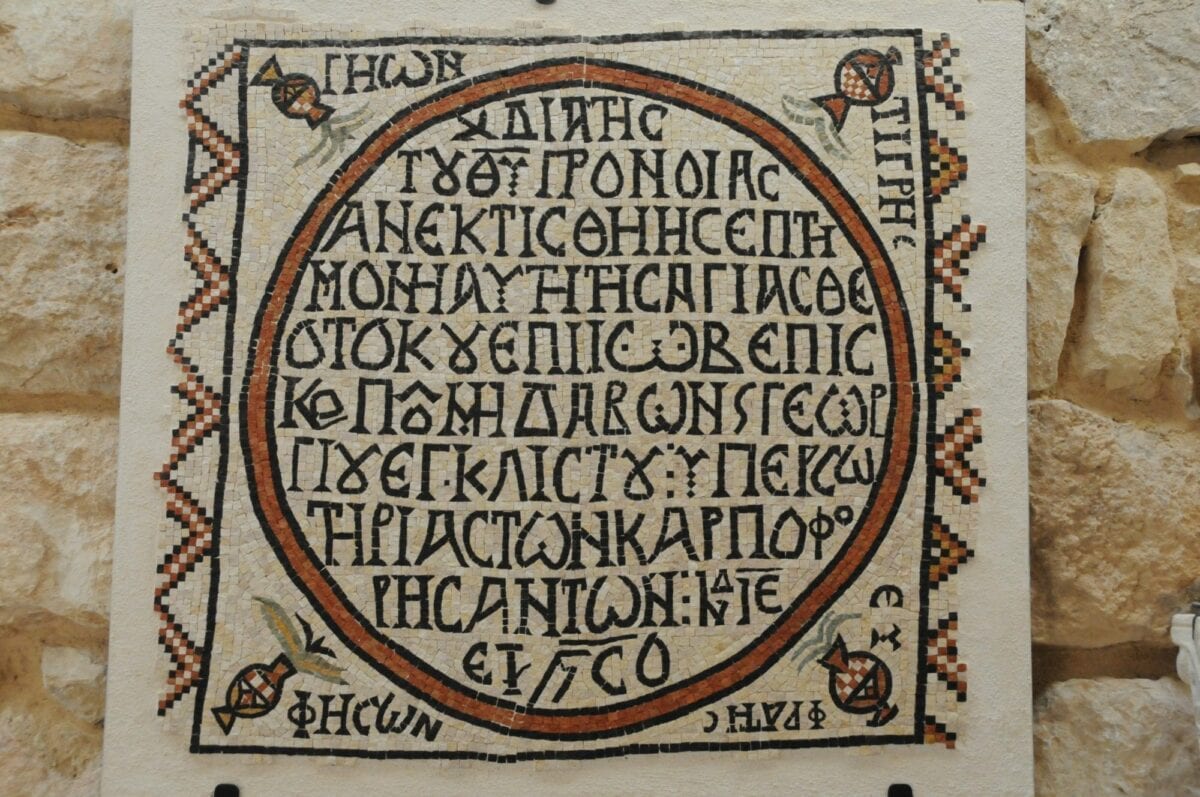 ΓΗΩΝ
ΤΙΓΡΗϹ
ΔΙΑΤΗϹ
ΤȢΘΥΠΡΟΝΟΙΑϹ
ΑΝΕΚΤΙϹΘΗΗϹΕΠΤΗ
ΜΟΝΗΑΥΤΗΤΗϹΑΓΙΑϹΘΕ
ΟΤΟΚȢΕΠΙΙϹΩΒΕΠΙϹ
ΚΟΠΟΥΜΗΔΑΒΩΝSΓΕΩΡ
ΓΙȢΕΓΚΛΙϹΤȢ:ΥΠΕΡϹΩ
ΤΗΡΙΑϹΤΩΝΚΑΡΠΟΦΟ
ΡΗϹΑΝΤΩΝ:ΙΝΔΙΕ
ϹΟ
ΦΗϹΩΝ
ΕΥ
ΦΡΑΤΗϹ